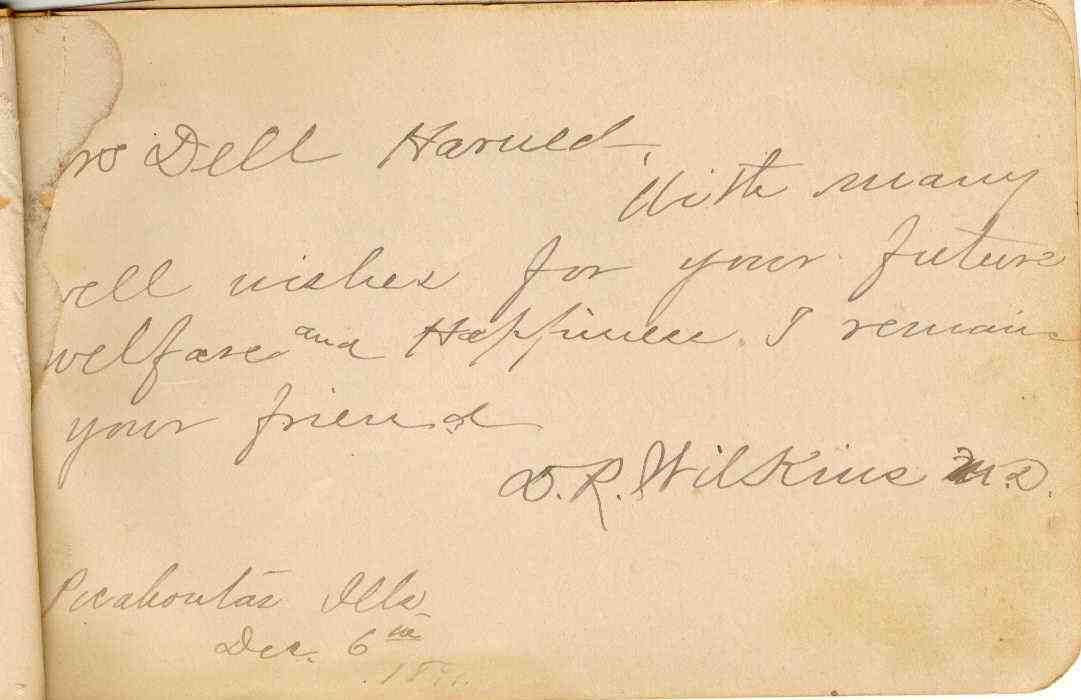 Dell Harned.
With many
well wishes for your future
welfare and Happiness I remain
your friend
D. R. Wilkins M.D.
Pocahontas Ills
Dec. 6th